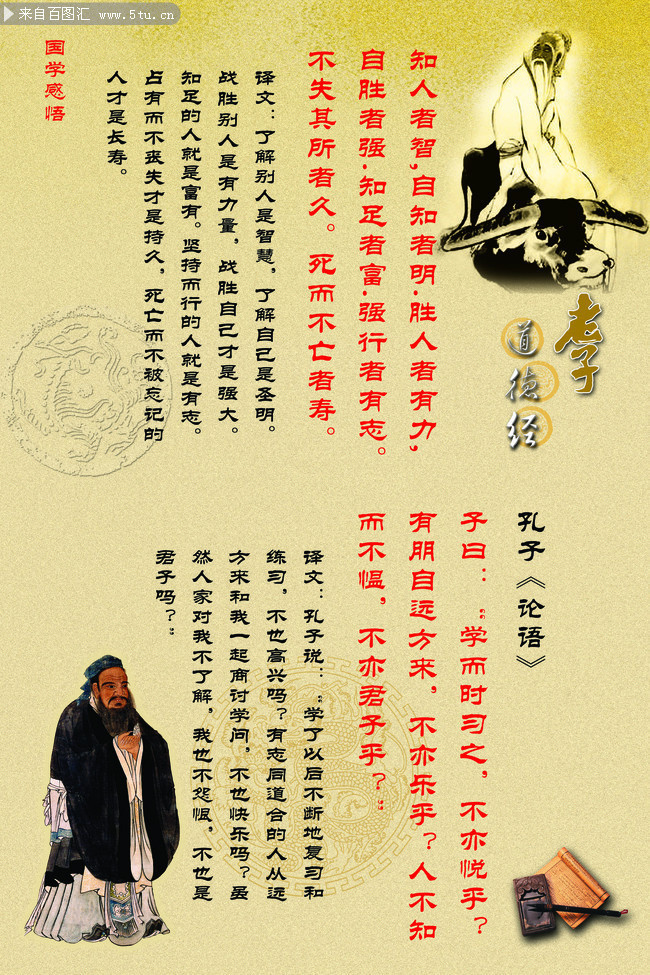 来自百图汇 www.5tu.cn
国学感悟
老子
道德经
知人者智,自知者明.胜人者有力,
自胜者强.知足者富.强行者有志。
不失其所者久。死而不亡者寿。
译文:了解别人是智慧,了解自己是圣明。
战胜别人是有力量,战胜自己才是强大。
知足的人就是富有。坚持而行的人就是有志。
占有而不丧失才是持久,死亡而不被忘记的
人才是长寿。
孔子《论语》
子曰:“学而时习之,不亦悦乎?
有朋自远方来,不亦乐乎?人不知
而不愠,不亦君子乎?”
译文:孔子说:“学了以后不断地复习和
练习,不也高兴吗?有志同道合的人从远
方来和我一起商讨学问,不也快乐吗?虽
然人家对我不了解,我也不怨愠,不也是
君子吗?”